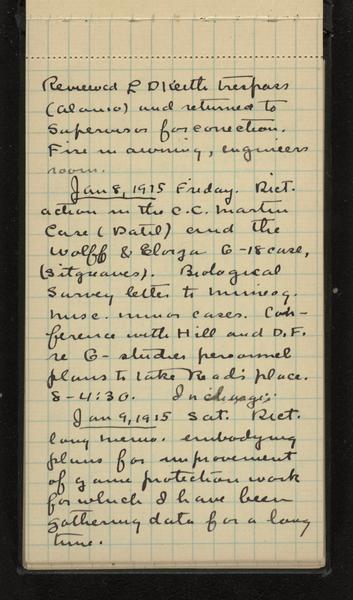 Reviewed L D Keith trespass
(Alamo) and returned to
Supervisor for corection.
Fire in awning, engineers
room.
Jan 8, 1915 Friday. Dict.
action in the C.C. Martin
Case (Datil) and the
Wolff & Elorga G-18 case,
(Sitgreaves). Biological
Survey letter to
misc. minor cases. Con-
ference with Hill and D.F.
re G- studies personnel
plans to take Read's place.
8-4:30. In charge.
Jan 9, 1915 Sat. Dict.
long memo. embodying
plans for improvement
of game protection work
for which I have been
gathering data for a long
time.